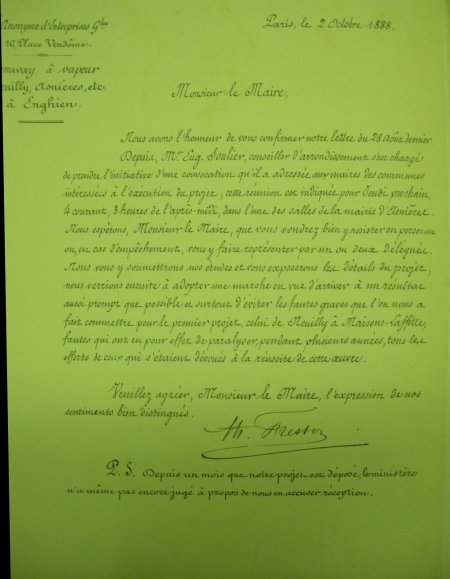 Anonyme d'Entreprises Gles
16, Place Vendôme.
Paris, le 2 Octobre 1888.
mway à vapeur
euilly, Asnières, etc.
à Enghien
Monsieur le Maire,
Nous avons l'honneur de vous confirmer notre lettre du 28 août dernier.
Depuis, Mr. Eug. Soulier, conseiller d'arrondissement s'est chargé
de prendre l'initiative d'une convocation qu'il a adressée aux maires des communes
intéressés à l'exécution du projet; cette réunion est indiquée pour Jeudi prochain,
4 courant, 3 heures de l'après-midi, dans l'une des salles de la mairie d'Asnières.
Nous espérons, Monsieur le Maire, que vous voudrez bien y assister en personne
ou, en cas d'empêchement, vous y faire représenter par un ou deux délégués.
Nous vous y soumettrons nos études et vous exposerons les détails du projet,
nous verrions ensuite à adopter une marche en vue d'arriver à un résultat
aussi prompt que possible et surtout d'éviter les fautes graves que l'on nous a
fait commettre pour le premier projet, celui de Neuilly à Maisons-Laffitte,
fautes qui ont eu pour effet de paralyser, pendant plusieurs années, tous les
efforts de ceux qui s'étaient dévoués à la réussite de cette œuvre.
Veuillez agréer, Monsieur le Maire, l'expression de nos
sentiments bien distingués.
P. S. Depuis un mois que notre projet est déposé, le ministère
n'a même pas encore jugé à propos de nous en accuser réception.